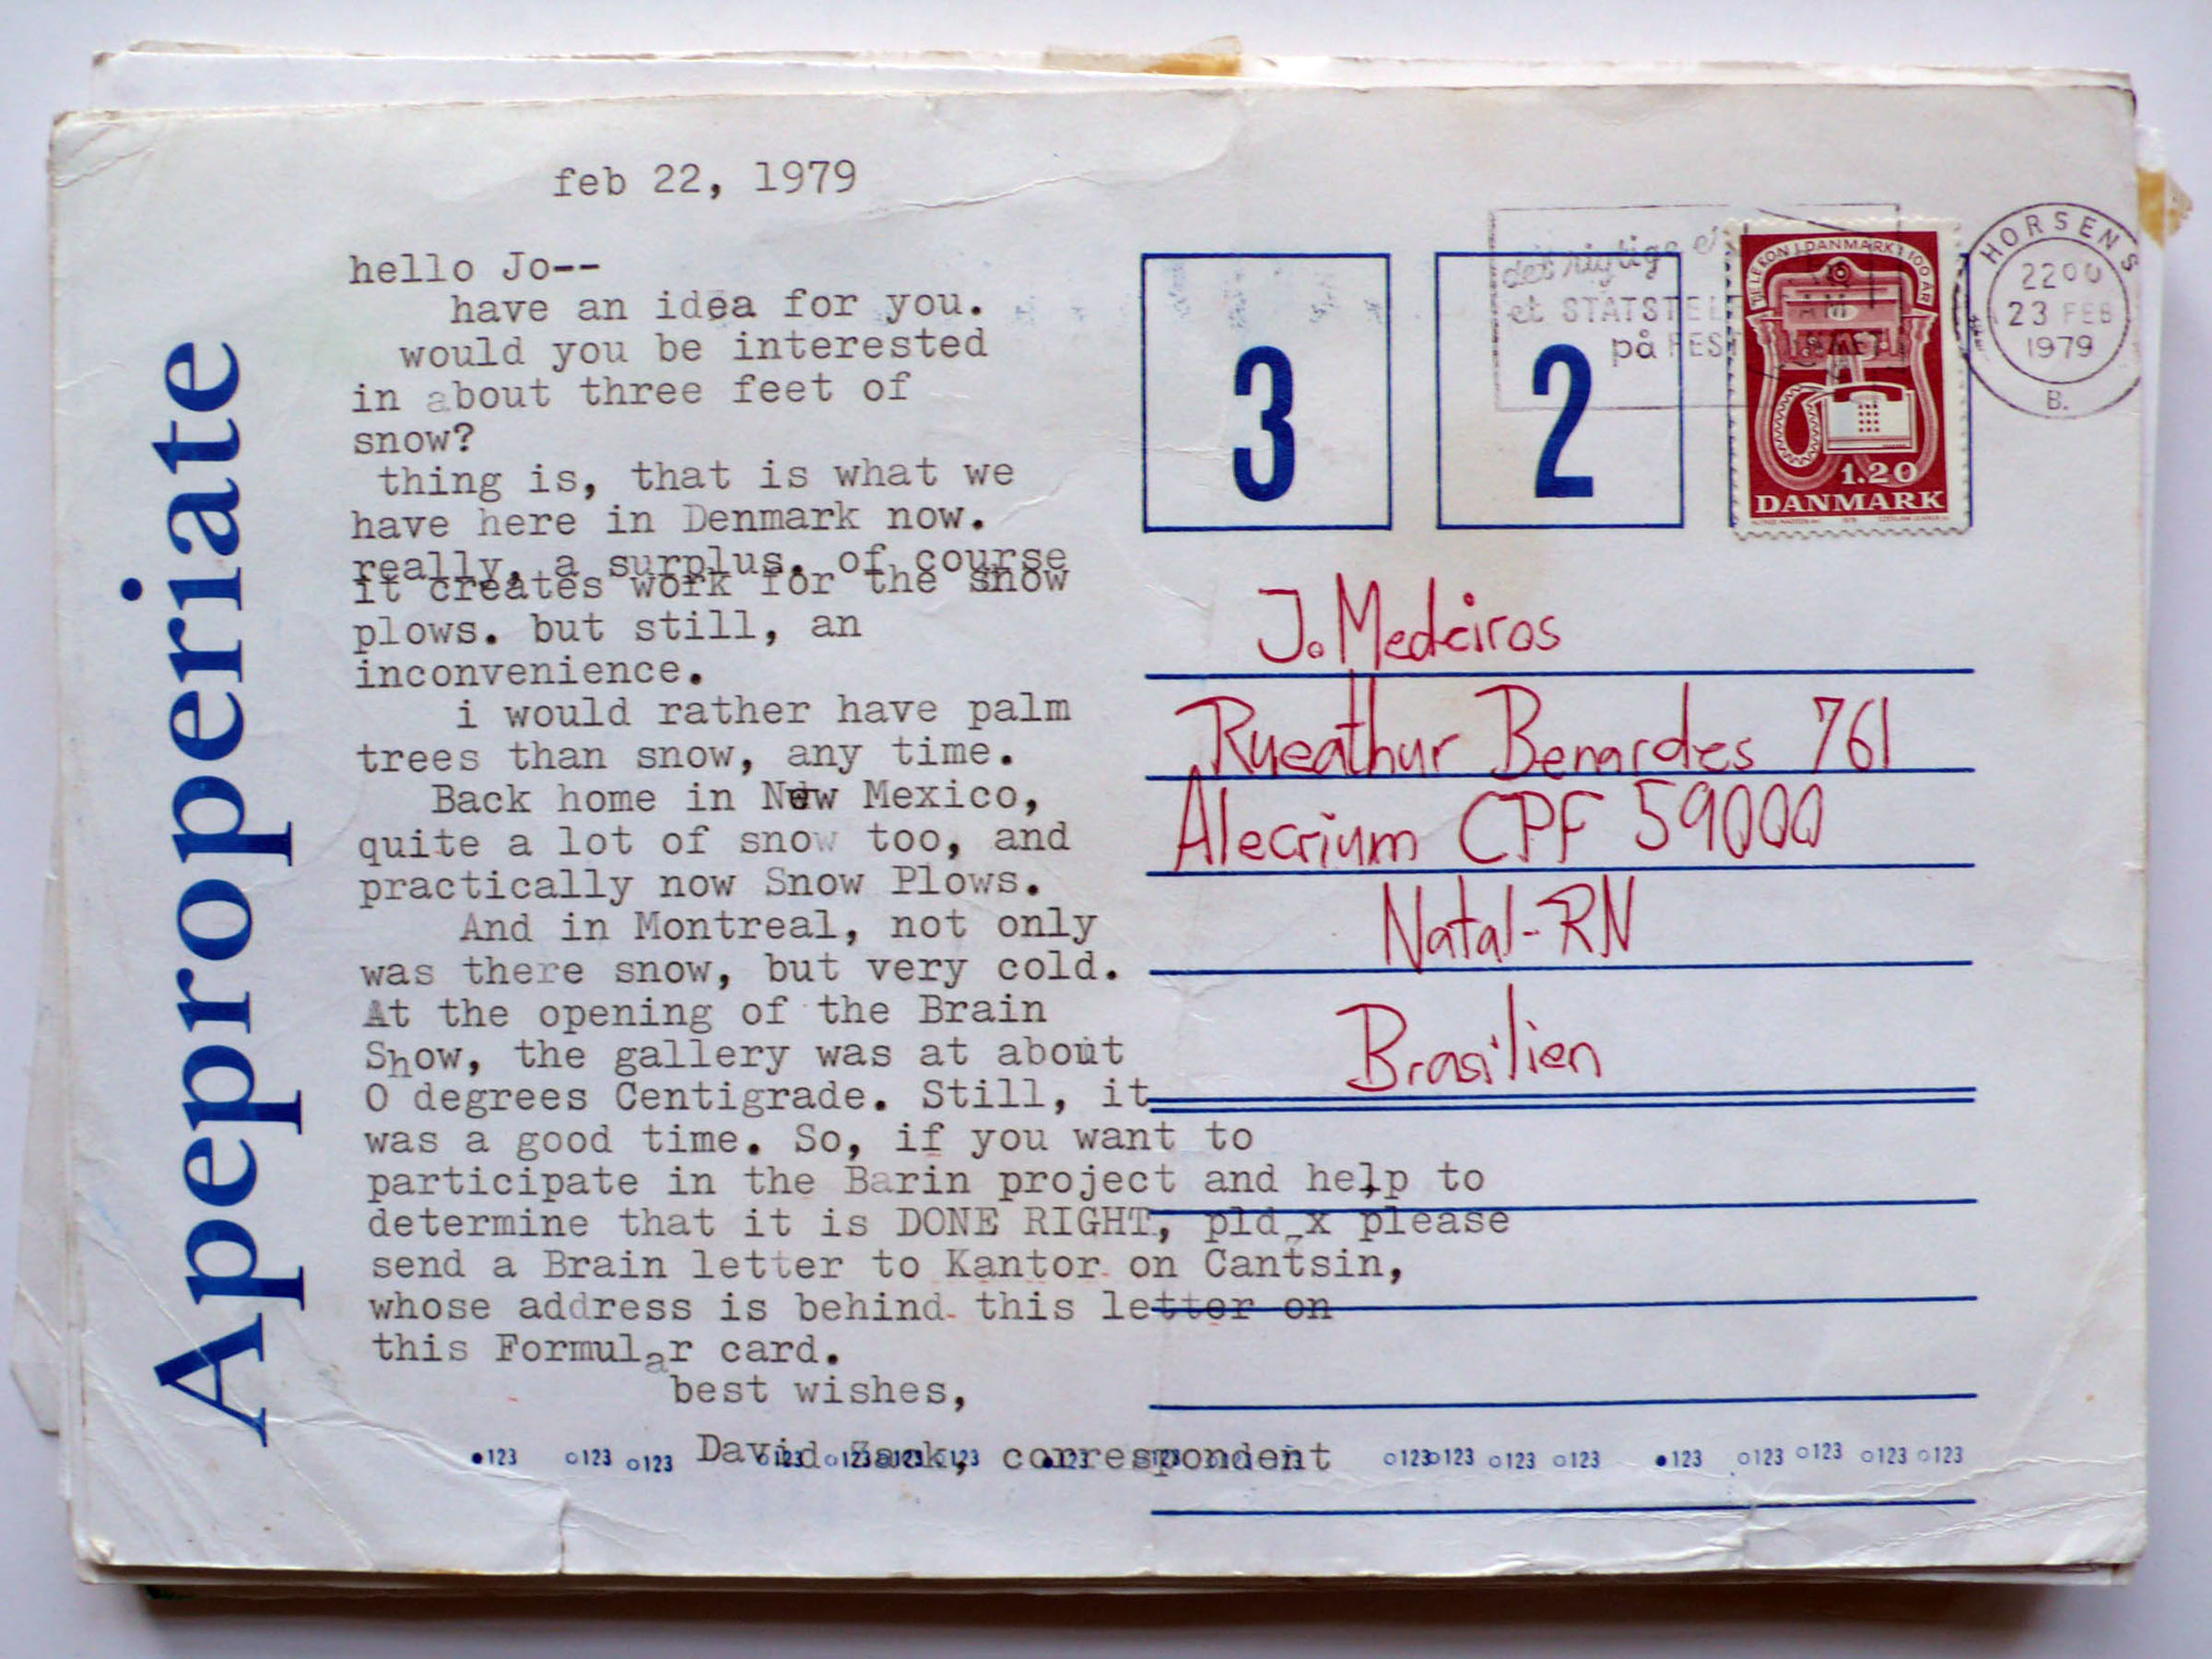 Apepropriate
feb 22, 1979
hello Jo--
have an idea for you.
would you be interested
in about three feet of
snow?
thing is, that is what we
have here in Denmark now.
really, a surplus. of course
it creates work for the snow
plows. but still, an
inconvenience.
i would rather have palm
trees than snow, any time.
Back home in New Mexico,
quite a lot of snow too, and
practically now Snow Plows.
And in Montreal, not only
was there snow, but very cold.
At the opening of the Brain
Show, the gallery was at about
0 degrees Centigrade. Still, it
was a good time. So, if you want to
participate in the Barin project and help to
determine that it is DONE RIGHT, pld x please
send a Brain letter to Kantor on Cantsin,
whose address is behind this letter on
this Formular card.
best wishes,
David Zack, correspondent
•123 o123 o123 o123 o123 o123 o123 •123 o123 o123 o123 o123 o123 o123 •123 o123 o123 o123 o123
3 2
det rigtige er
et STATSTEL
på
TELEFON I DANMARK I 100 ÅR
1.20
DANMARK
HORSENS
2200
23 FEB
1979
B.
J. Medeiros
Rueathur Benardes 761
Alecrium CPF 59000
Natal-RN
Brasilien